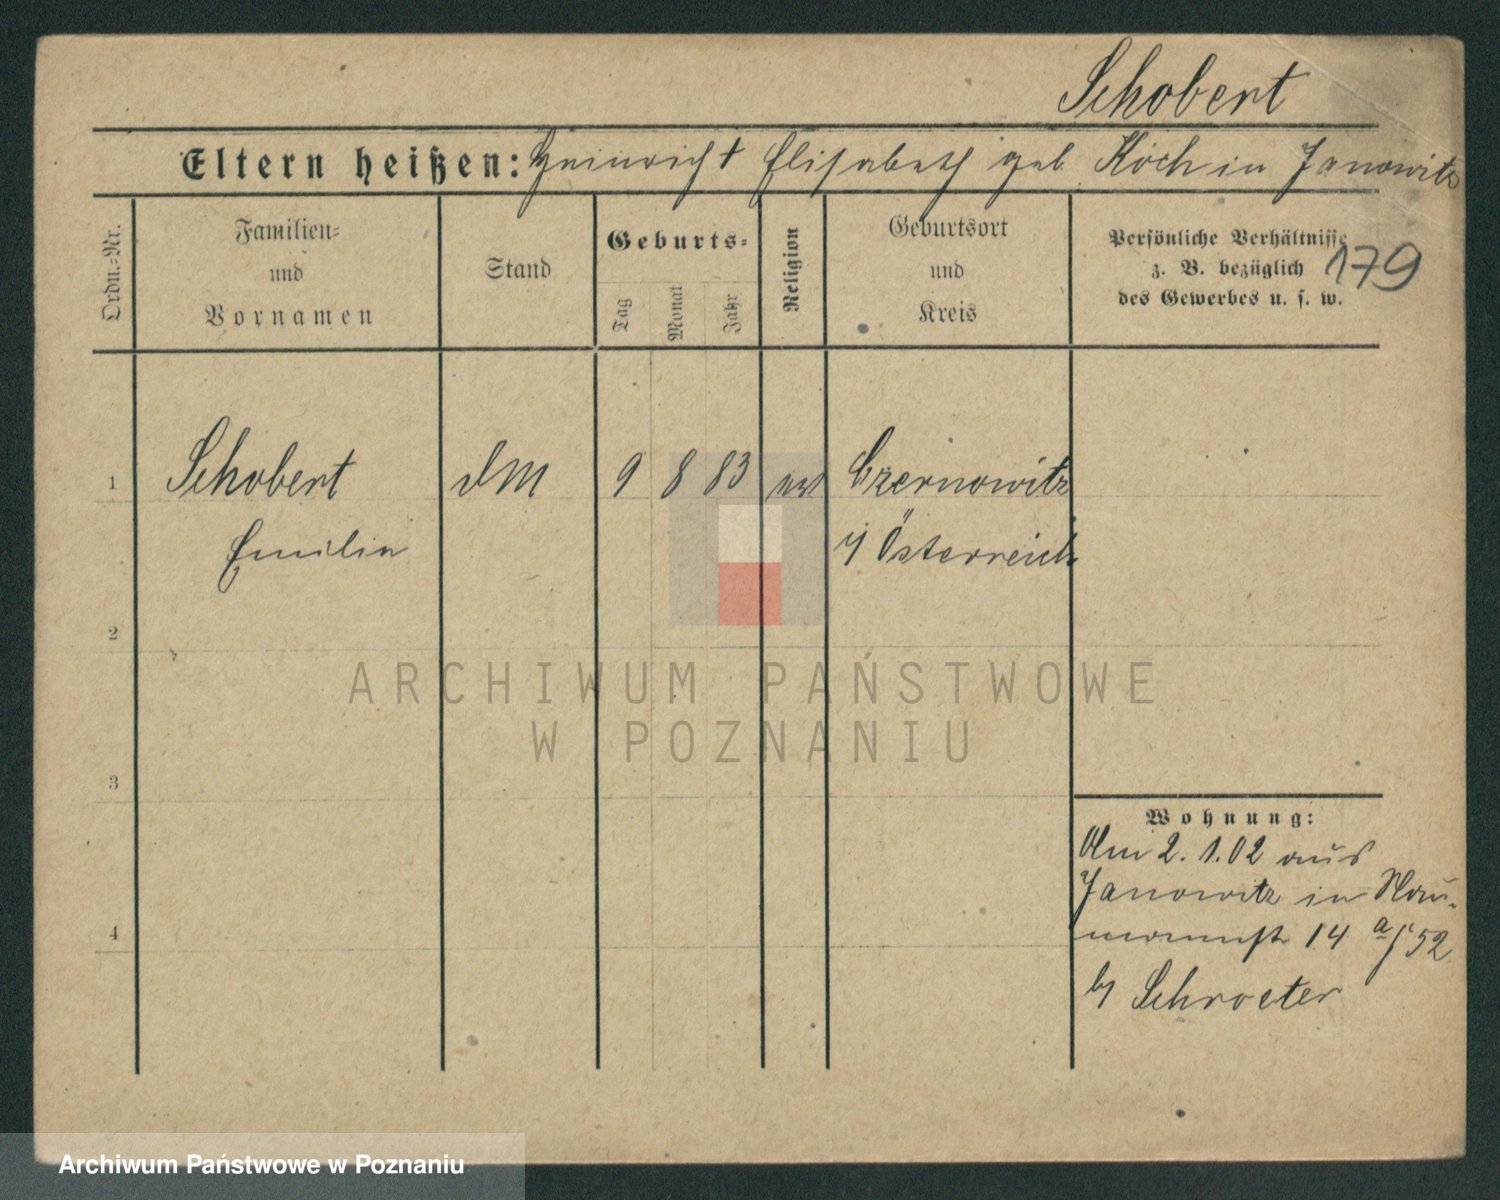 Schobert
Eltern heißen: Heinrich † Elisabeth geb. Koch in Janowitz
Ordn.-Nr.
Familien-
und
Vornamen
Stand
Geburts-
Tag
Monat
Jahr
Religion
Geburtsort
und
Kreis
Persönliche Verhältnisse
z. B. bezüglich
des Gewerbes u. s. w.
179
1
Schobert
DM
9
8
83
Czernowitz
Emilie
i/ Österreich
2
ARCHIWUM PAŃSTWOWE
W POZNANIU
3
Wohnung:
Am 2.1.02 aus
Janowitz in Nau-
mannstr 14
b/ Schroeter
4
Archiwum Państwowe w Poznaniu